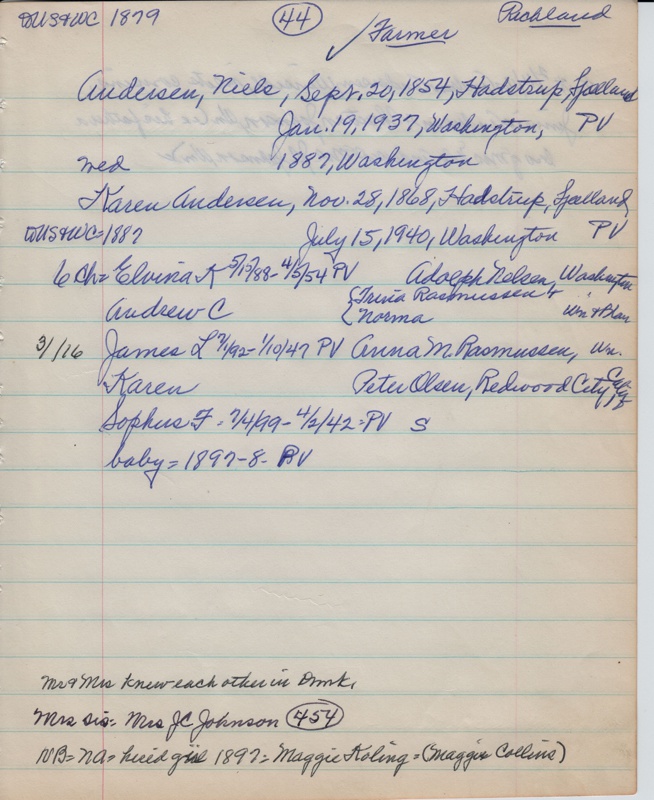 DUS&WC 1879 44 Richland
✓ Farmer
Andersen, Niels, Sept. 20, 1854, Hadstrup, Sjaelland
Jan. 19, 1937, Washington, PV
wed 1887, Washington
Karen Andersen, Nov. 28, 1868, Hadstrup, Sjaelland
DUS&WC=1887 July 15, 1940, Washington PV
6 ch= Elvina K 5/15/88-4/5/54 PV Adolph Nelsen, Washington
Andrew C { Trina Rasmussen +
{ Norma Wn &
3/16 James L 7/1/92-1/10/47 PV Anna M Rasmussen, Wn.
Karen Peter Olsen, Redwood City,
Sophus F-7/4/99-4/2/42=PV S
baby=1897-8- PV
Mr & Mrs knew each other in Dnmk.
Mrs sis= Mrs JC Johnson 454
NB= NA= hired girl 1897= Maggie Koling=(Maggie Collins)